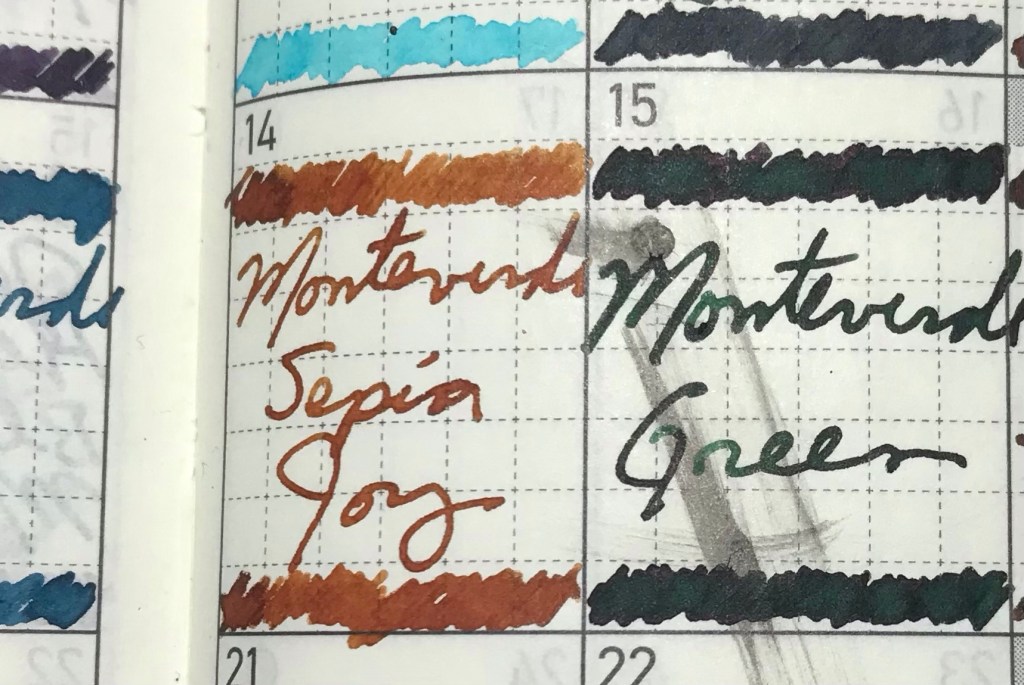 14
Monteverde
Sepia
Joy
15
Monteverde
Green
21
22